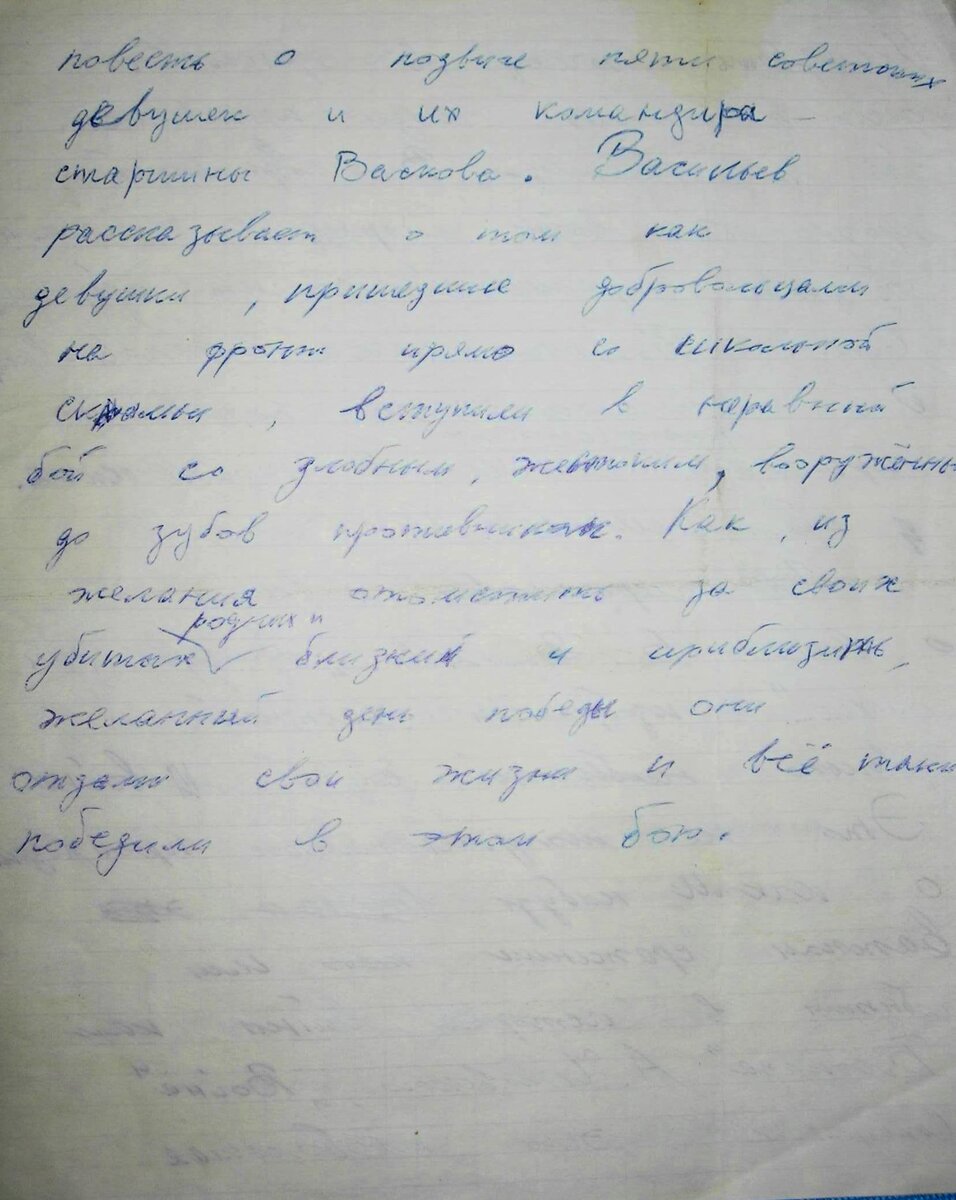 повесть о подвиге пяти советских
девушек и их командира
старшины Васкова. Васильев
рассказывает о том как
девушки, пришедшие добровольцами
на фронт прямо со школьной
скамьи, вступили в неравный
бой со злобным, жестоким, вооружённым
до зубов противником. Как, из
желания отомстить за своих
родных и
убитых близких и приблизить,
желанный день победы они
отдали свои жизни и всё таки
победили в этом бою.